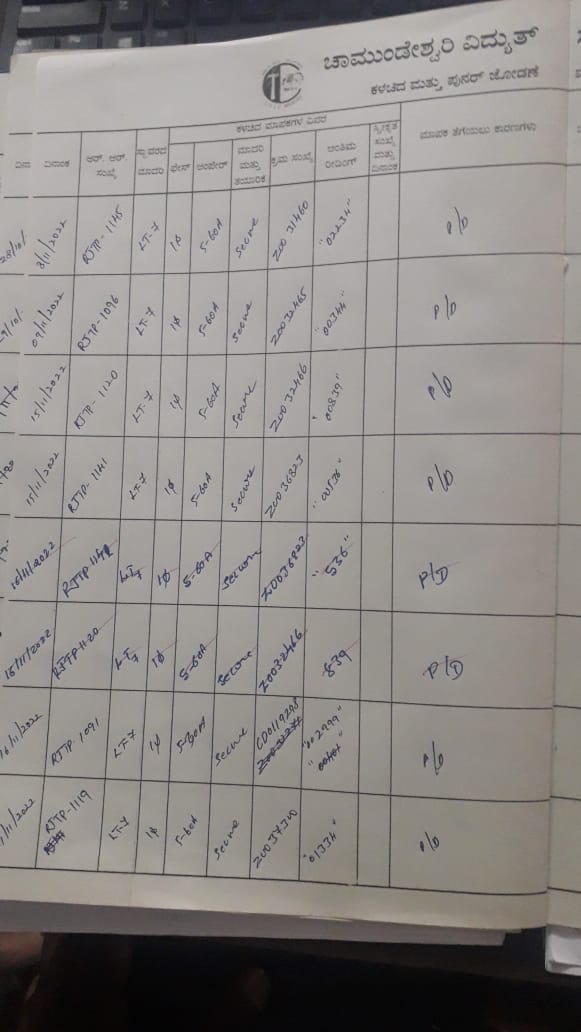 ಚಾಮುಂಡೇಶ್ವರಿ ವಿದ್ಯುತ್
ಕಳಚಿದ ಮತ್ತು ಪುನರ್ ಜೋಡಣೆ
ಕಳಚಿದ ಮಾಪಕಗಳ ವಿವರ
ದಿನಾಂಕ ಆರ್. ಆರ್. ಸಂಖ್ಯೆ ಸ್ಥಾವರದ ಮಾದರಿ ಫೇಸ್ ಅಂಪೇರ್ ಮಾದರಿ ಮತ್ತು ತಯಾರಿಕೆ ಕ್ರಮ ಸಂಖ್ಯೆ ಅಂತಿಮ ರೀಡಿಂಗ್ ಸ್ವೀಕೃತ ಸಂಖ್ಯೆ ಮತ್ತು ದಿನಾಂಕ ಮಾಪಕ ತೆಗೆಯಲು ಕಾರಣಗಳು
28/10/ 8/11/2022 RJTP-1145 LT-7 1φ 5-60A Secure Z0031460 "02234" P/D
09/11/2022 RJTP-1096 LT-7 1φ 5-60A Secure Z0032465 "00344" P/D
15/11/2022 RJTP-1120 LT-7 1φ 5-60A Secure Z0032466 "00839" P/D
15/11/2022 RJTP-1141 LT-7 1φ 5-60A Secure Z0036823 "00536" P/D
RJTP-1141 LT-7 1φ 5-60A Secure Z0036823 "536" P/D
15/11/2022 RJTP-1120 LT-7 1φ 5-60A Secure Z0032466 839 P/D
16/11/2022 RJTP-1091 LT-7 1φ 5-30A Secure CD0119298 "002999" P/D
/11/2022 RJTP-1119 LT-7 1φ 5-60A Secure Z0037300 "01334" P/D